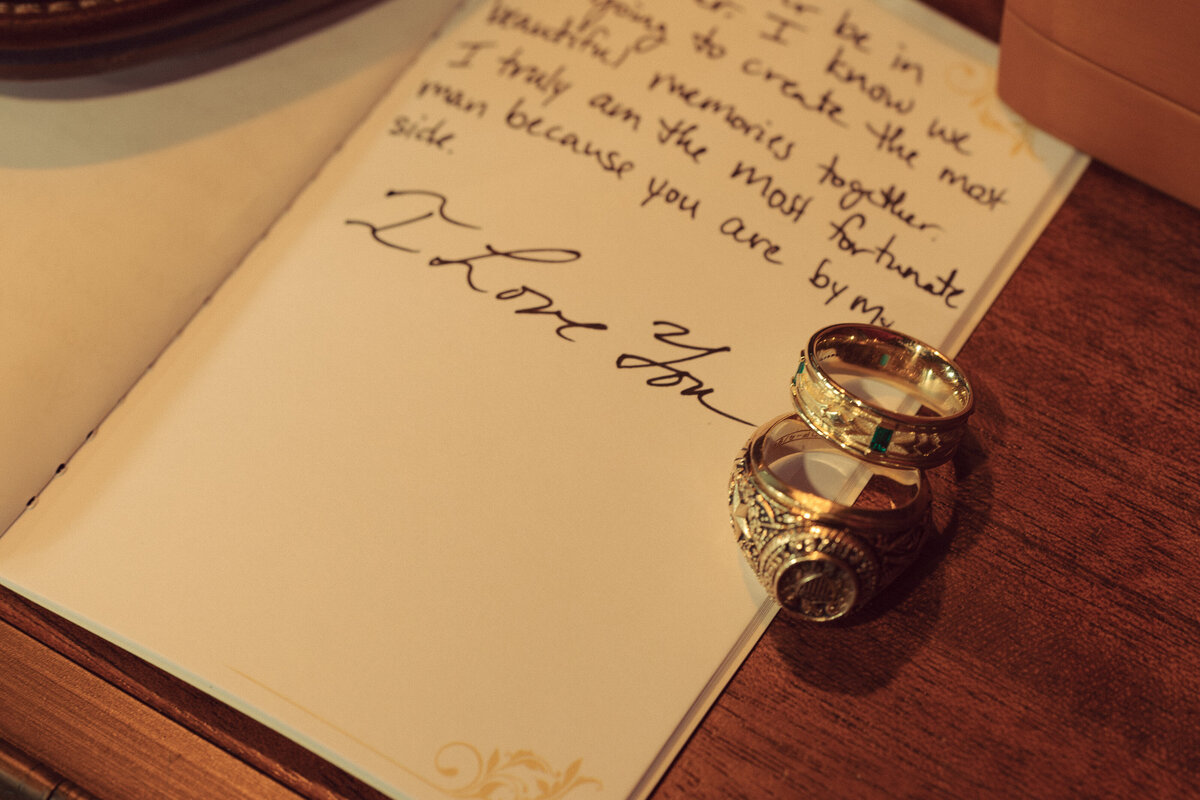 be in
I know we
going to create the most
beautiful memories together.
I truly am the most fortunate
man because you are by my
side.
I Love You